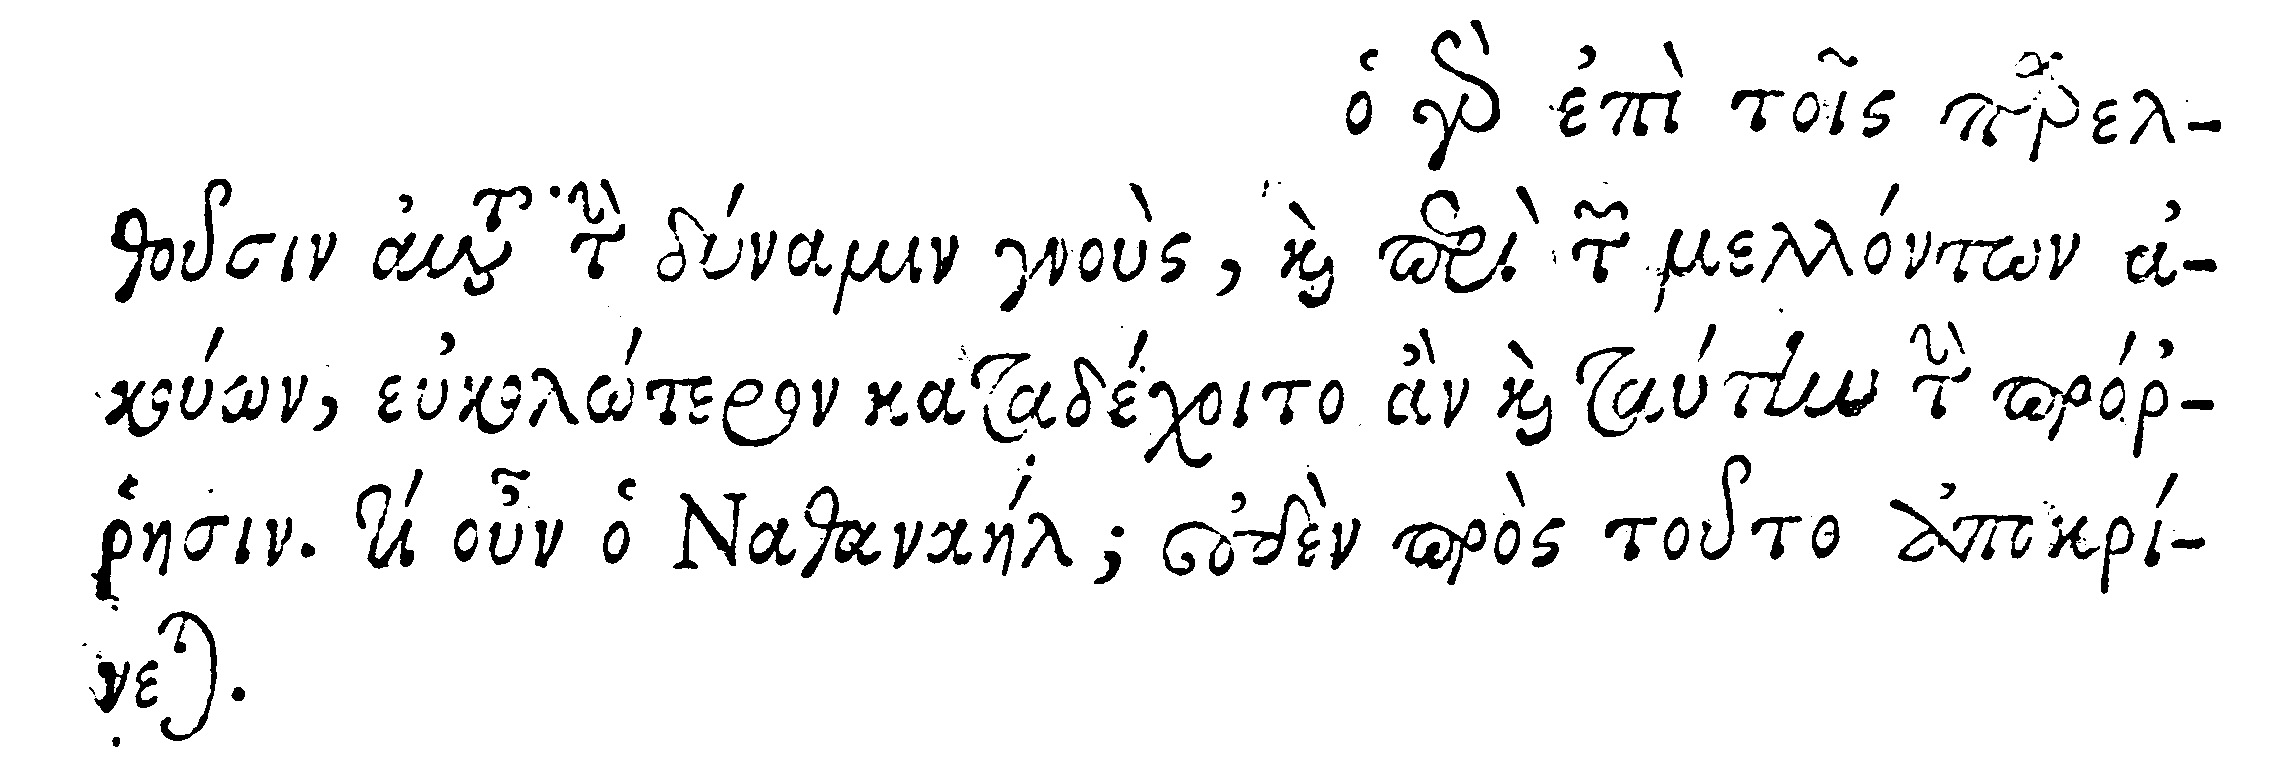 ὁ γὰρ ἐπὶ τοῖς παρελ-
θοῦσιν αὐτοῦ τὴν δύναμιν γνοὺς, καὶ περὶ τῶν μελλόντων ἀ-
κούων, εὐκολώτερον καταδέχοιτο ἂν καὶ ταύτην τὴν πρόῤ-
ῥησιν. τί οὖν ὁ Ναθαναήλ; οὐδὲν πρὸς τοῦτο ἀποκρί-
νεται.